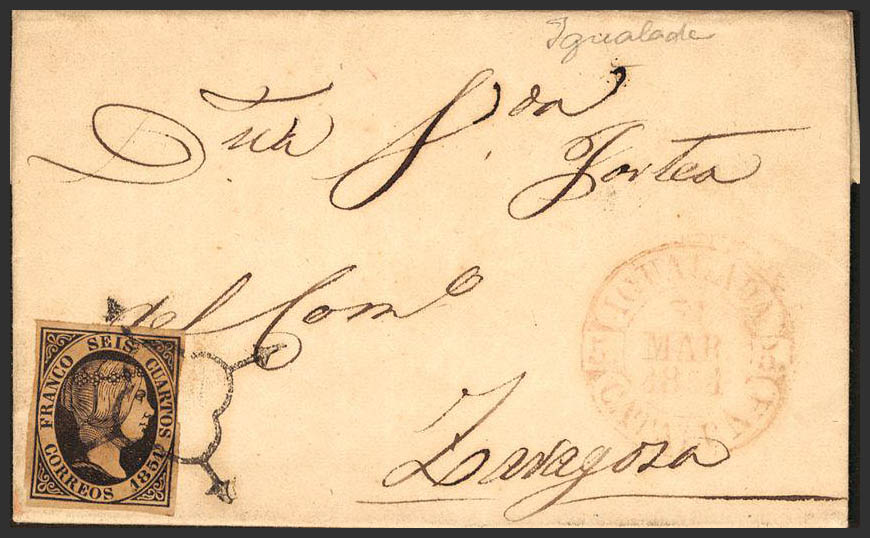 Igualade
Fortea
del Com.º
Zaragoza
FRANCO SEIS CUARTOS
CORREOS 1851
IGUALADA
31
MAR
1851
CATALUÑA